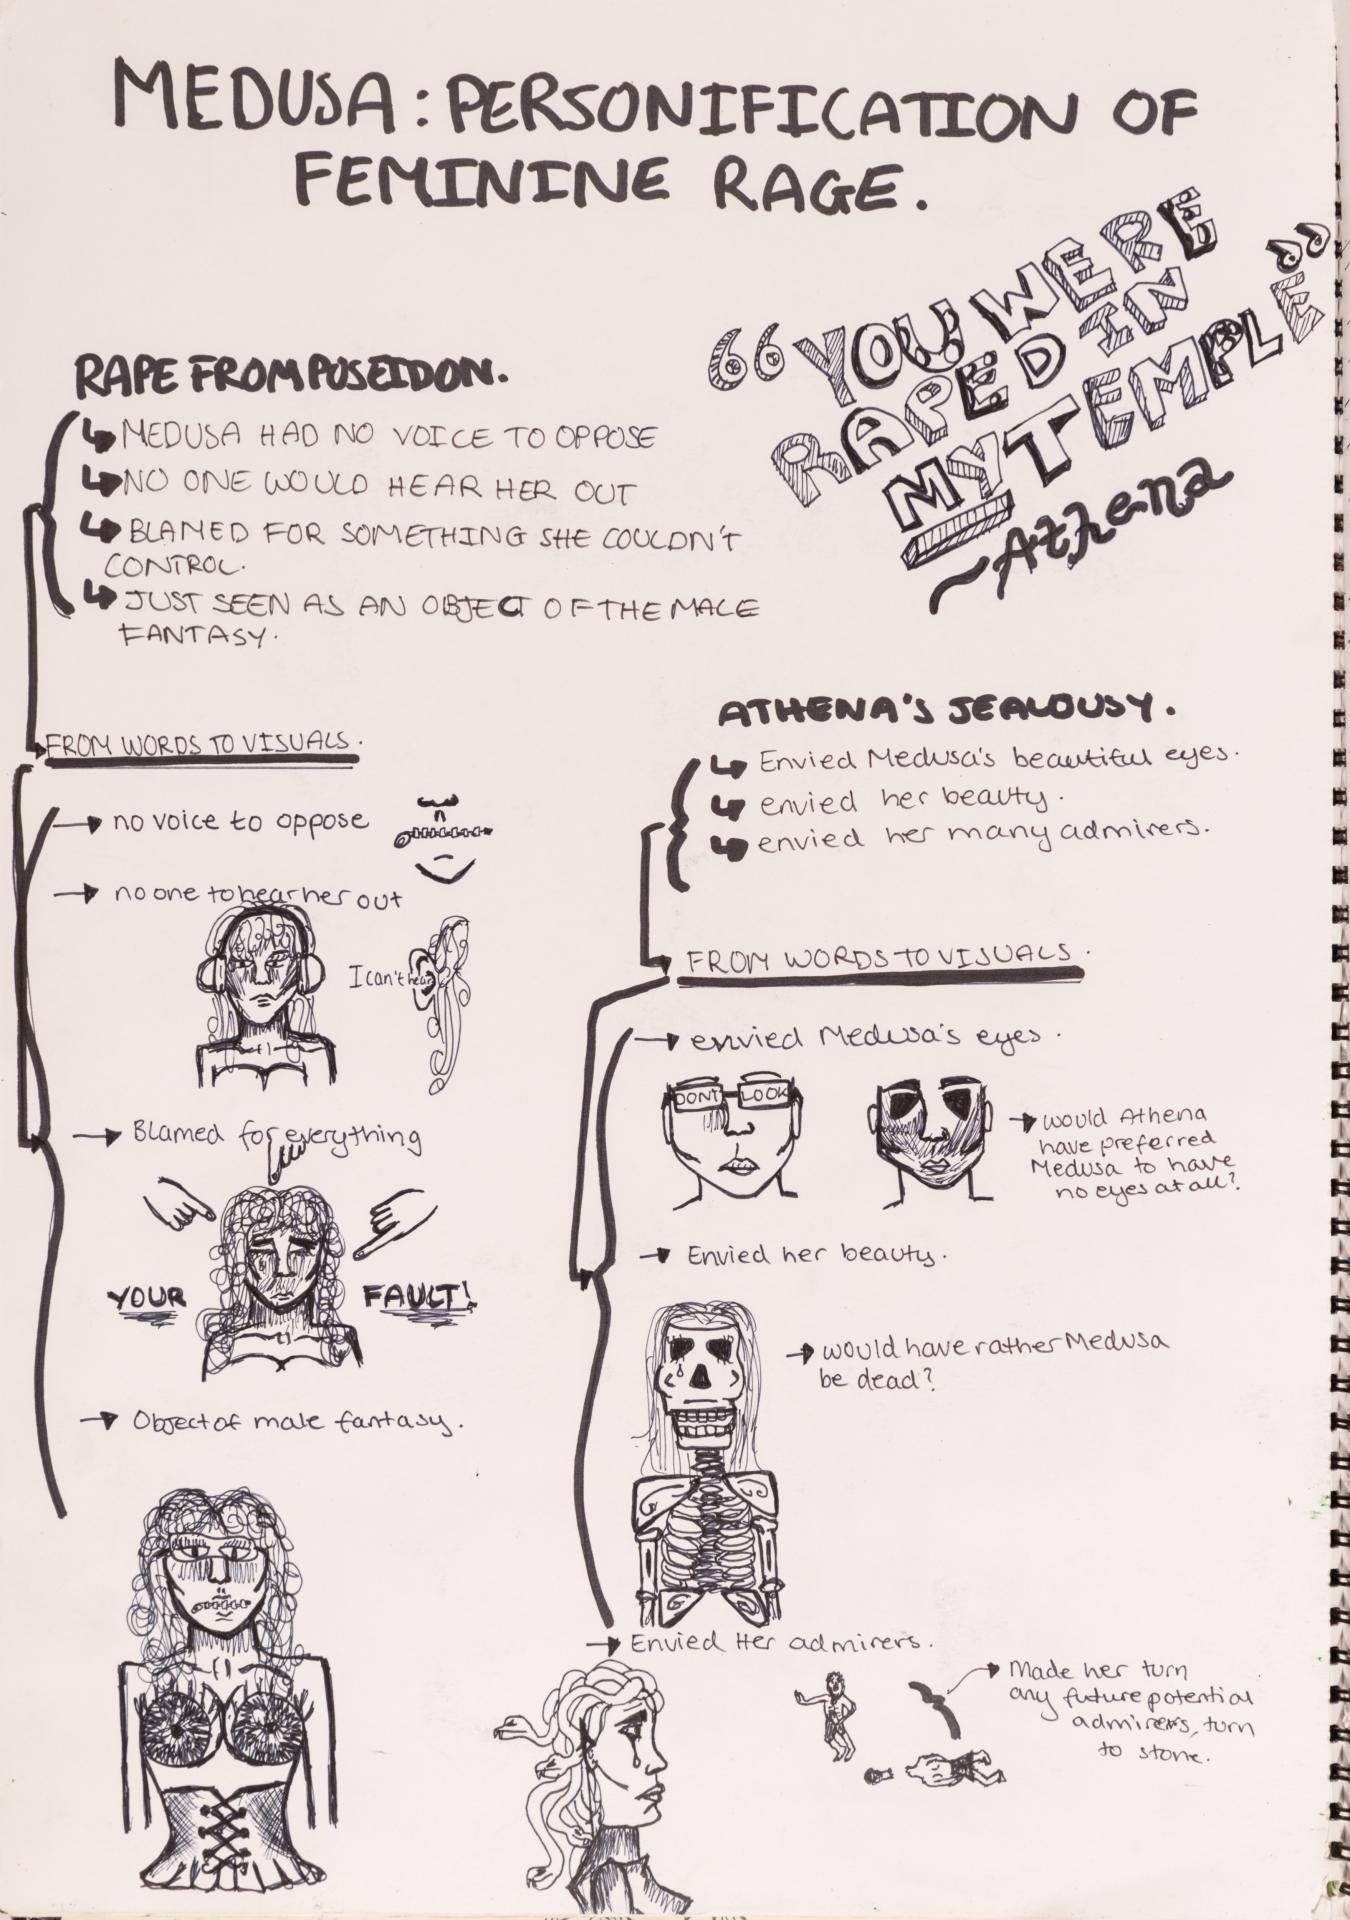 MEDUSA: PERSONIFICATION OF
FEMININE RAGE.
"YOU WERE
RAPED IN
MY TEMPLE"
~Athena
RAPE FROM POSEIDON.
MEDUSA HAD NO VOICE TO OPPOSE
NO ONE WOULD HEAR HER OUT
BLAMED FOR SOMETHING SHE COULDN'T
CONTROL.
JUST SEEN AS AN OBJECT OF THE MALE
FANTASY.
FROM WORDS TO VISUALS.
no voice to oppose
no one to hear her out
I can't hear
Blamed for everything
YOUR FAULT!
Object of male fantasy.
ATHENA'S JEALOUSY.
Envied Medusa's beautiful eyes.
envied her beauty.
envied her many admirers.
FROM WORDS TO VISUALS.
envied Medusa's eyes.
DONT LOOK
would Athena
have preferred
Medusa to have
no eyes at all?
Envied her beauty.
would have rather Medusa
be dead?
Envied Her admirers.
Made her turn
any future potential
admirers, turn
to stone.